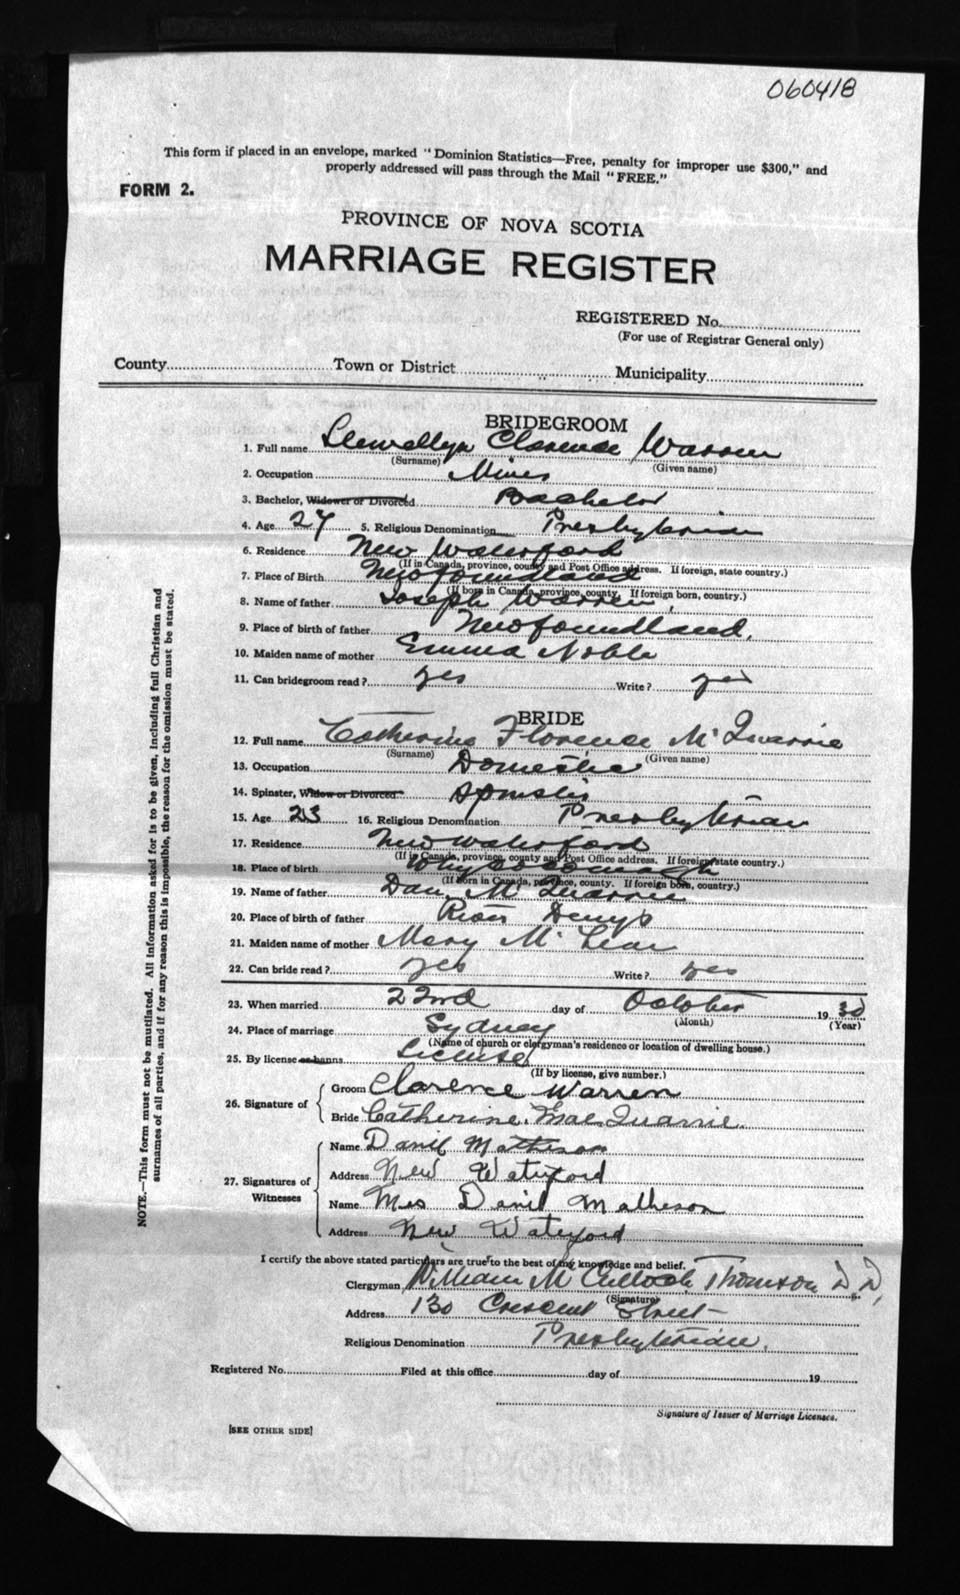 060418
This form if placed in an envelope, marked "Dominion Statistics—Free, penalty for improper use $300," and
properly addressed will pass through the Mail "FREE."
FORM 2.
PROVINCE OF NOVA SCOTIA
MARRIAGE REGISTER
REGISTERED No.
(For use of Registrar General only)
County Town or District Municipality
BRIDEGROOM
1. Full name Llewellyn Clarence Warren
(Surname) (Given name)
2. Occupation Miner
3. Bachelor, Widower or Divorced Bachelor
4. Age 27 5. Religious Denomination Presbyterian
6. Residence New Waterford
(If in Canada, province, county and Post Office address. If foreign, state country.)
7. Place of Birth Newfoundland
(If born in Canada, province, county. If foreign born, country.)
8. Name of father Joseph Warren
9. Place of birth of father Newfoundland.
10. Maiden name of mother Emma Noble
11. Can bridegroom read? yes Write? yes
BRIDE
12. Full name Catherine Florence McQuarrie
(Surname) (Given name)
13. Occupation Domestic
14. Spinster, Widow or Divorced Spinster
15. Age 23 16. Religious Denomination Presbyterian
17. Residence New Waterford
(If in Canada, province, county and Post Office address. If foreign state country.)
18. Place of birth Whycocomagh
(If born in Canada, province, county. If foreign born, country.)
19. Name of father Dan McQuarrie
20. Place of birth of father River Denys
21. Maiden name of mother Mary McLean
22. Can bride read? yes Write? yes
23. When married 22nd day of October 1930
(Month) (Year)
24. Place of marriage Sydney
(Name of church or clergyman's residence or location of dwelling house.)
25. By license or banns License
(If by license, give number.)
26. Signature of
Groom Clarence Warren
Bride Catherine MacQuarrie.
27. Signatures of Witnesses
Name Daniel Matheson
Address New Waterford
Name Mrs Daniel Matheson
Address New Waterford
I certify the above stated particulars are true to the best of my knowledge and belief.
Clergyman William McCulloch Thomson D.D.
(Signature)
Address 130 Crescent Street
Religious Denomination Presbyterian.
Registered No. Filed at this office day of 19
Signature of Issuer of Marriage Licenses.
[SEE OTHER SIDE]
NOTE.—This form must not be mutilated. All information asked for is to be given, including full Christian and
surnames of all parties, and if for any reason this is impossible, the reason for the omission must be stated.